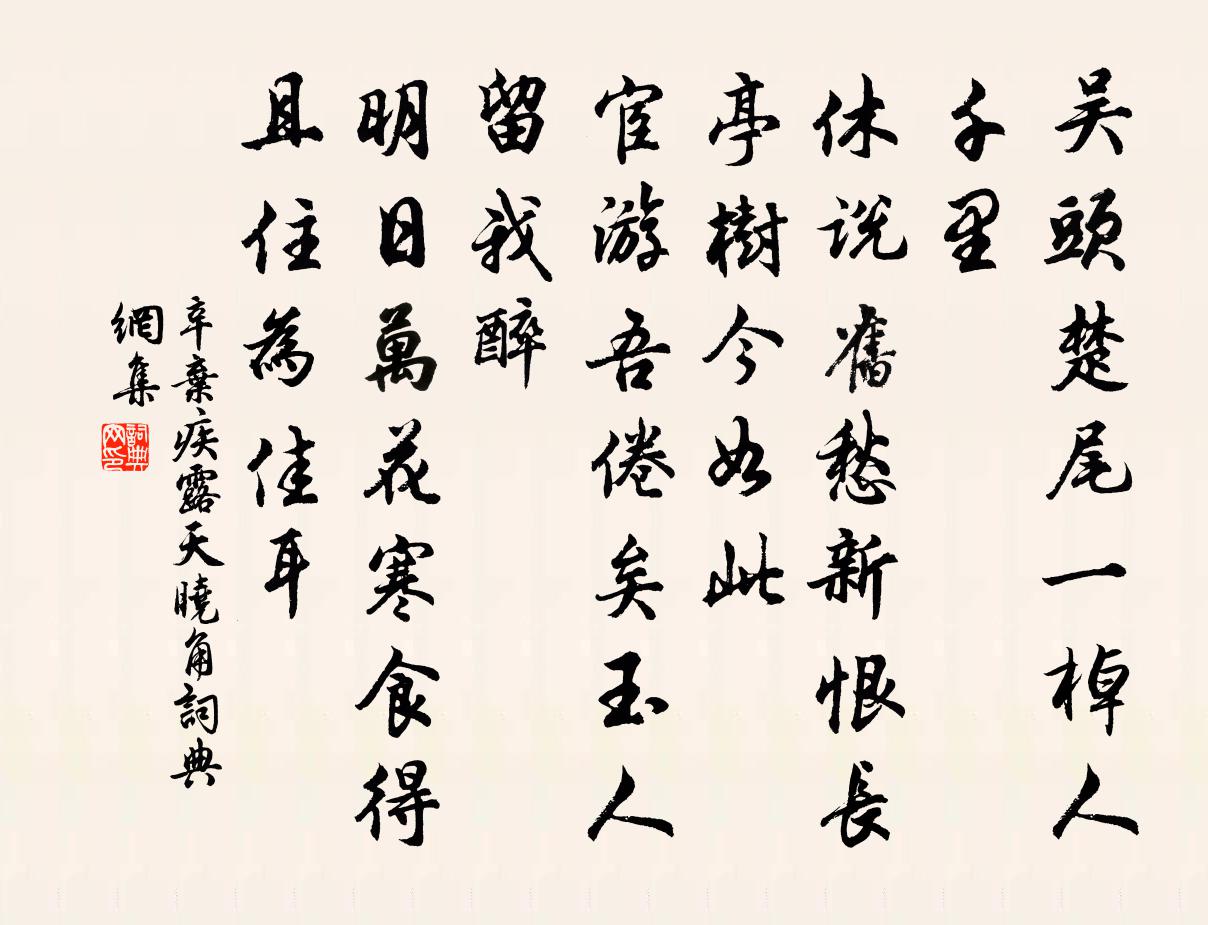 吴頭楚尾一棹人
千里
休说舊愁新恨長
亭樹今如此
宦游吾倦矣玉人
留我醉
明日萬花寒食得
且住為佳耳
辛棄疾露天曉角詞典
網集
詞典
网印